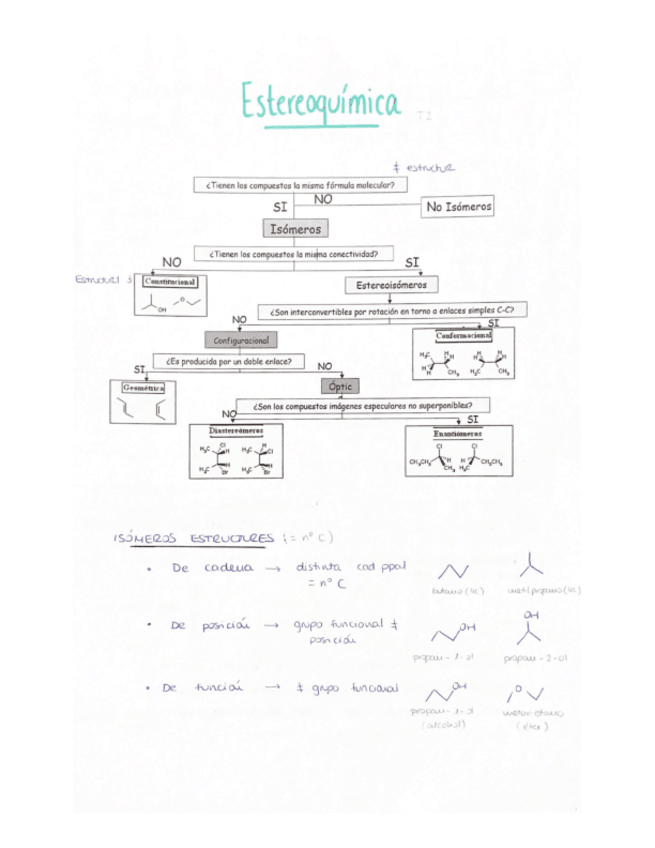 Estereoquímica T2
≠ estructur
¿Tienen los compuestos la misma fórmula molecular?
SI
NO
No Isómeros
Isómeros
¿Tienen los compuestos la misma conectividad?
NO
SI
Constitucional
OH
O
Estereoisómeros
¿Son interconvertibles por rotación en torno a enlaces simples C-C?
NO
SI
Configuracional
Conformacional
H₃C H H H H
H H CH₃ H₃C CH₃
¿Es producida por un doble enlace?
SI
NO
Geométrica
Óptic
¿Son los compuestos imágenes especulares no superponibles?
NO
SI
Diastereómeros
H₃C Cl H H₃C H Cl
H₃C H Br H₃C H Br
Enantiómeros
Cl Cl
CH₃CH₂ H CH₃ H H₃C CH₂CH₃
ISÓMEROS ESTRUCTURES (= nº C)
• De cadena → distinta cad ppal
= nº C
butano (4c) metilpropano (4c)
• De posición → grupo funcional ≠
posición
OH OH
propan-1-ol propan-2-ol
• De función → ≠ grupo funcional
OH O
propan-1-ol
(alcohol) (éter)